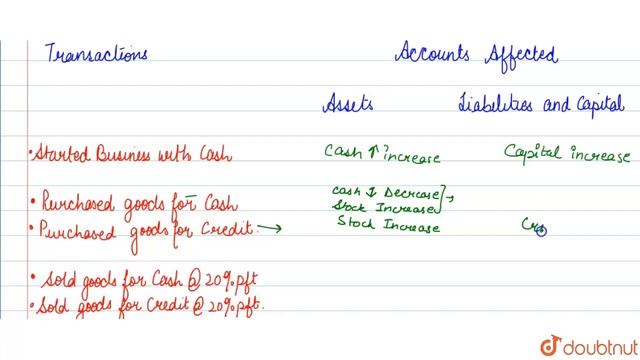 Transactions Accounts Affected
Assets Liabilities and Capital
• Started Business with Cash Cash ↑ increase Capital increase
• Purchased goods for Cash Cash ↓ Decrease
Stock Increase
• Purchased goods for Credit. → Stock Increase Cre
• Sold goods for Cash @ 20% pft
• Sold goods for Credit @ 20% pft.
doubtnut